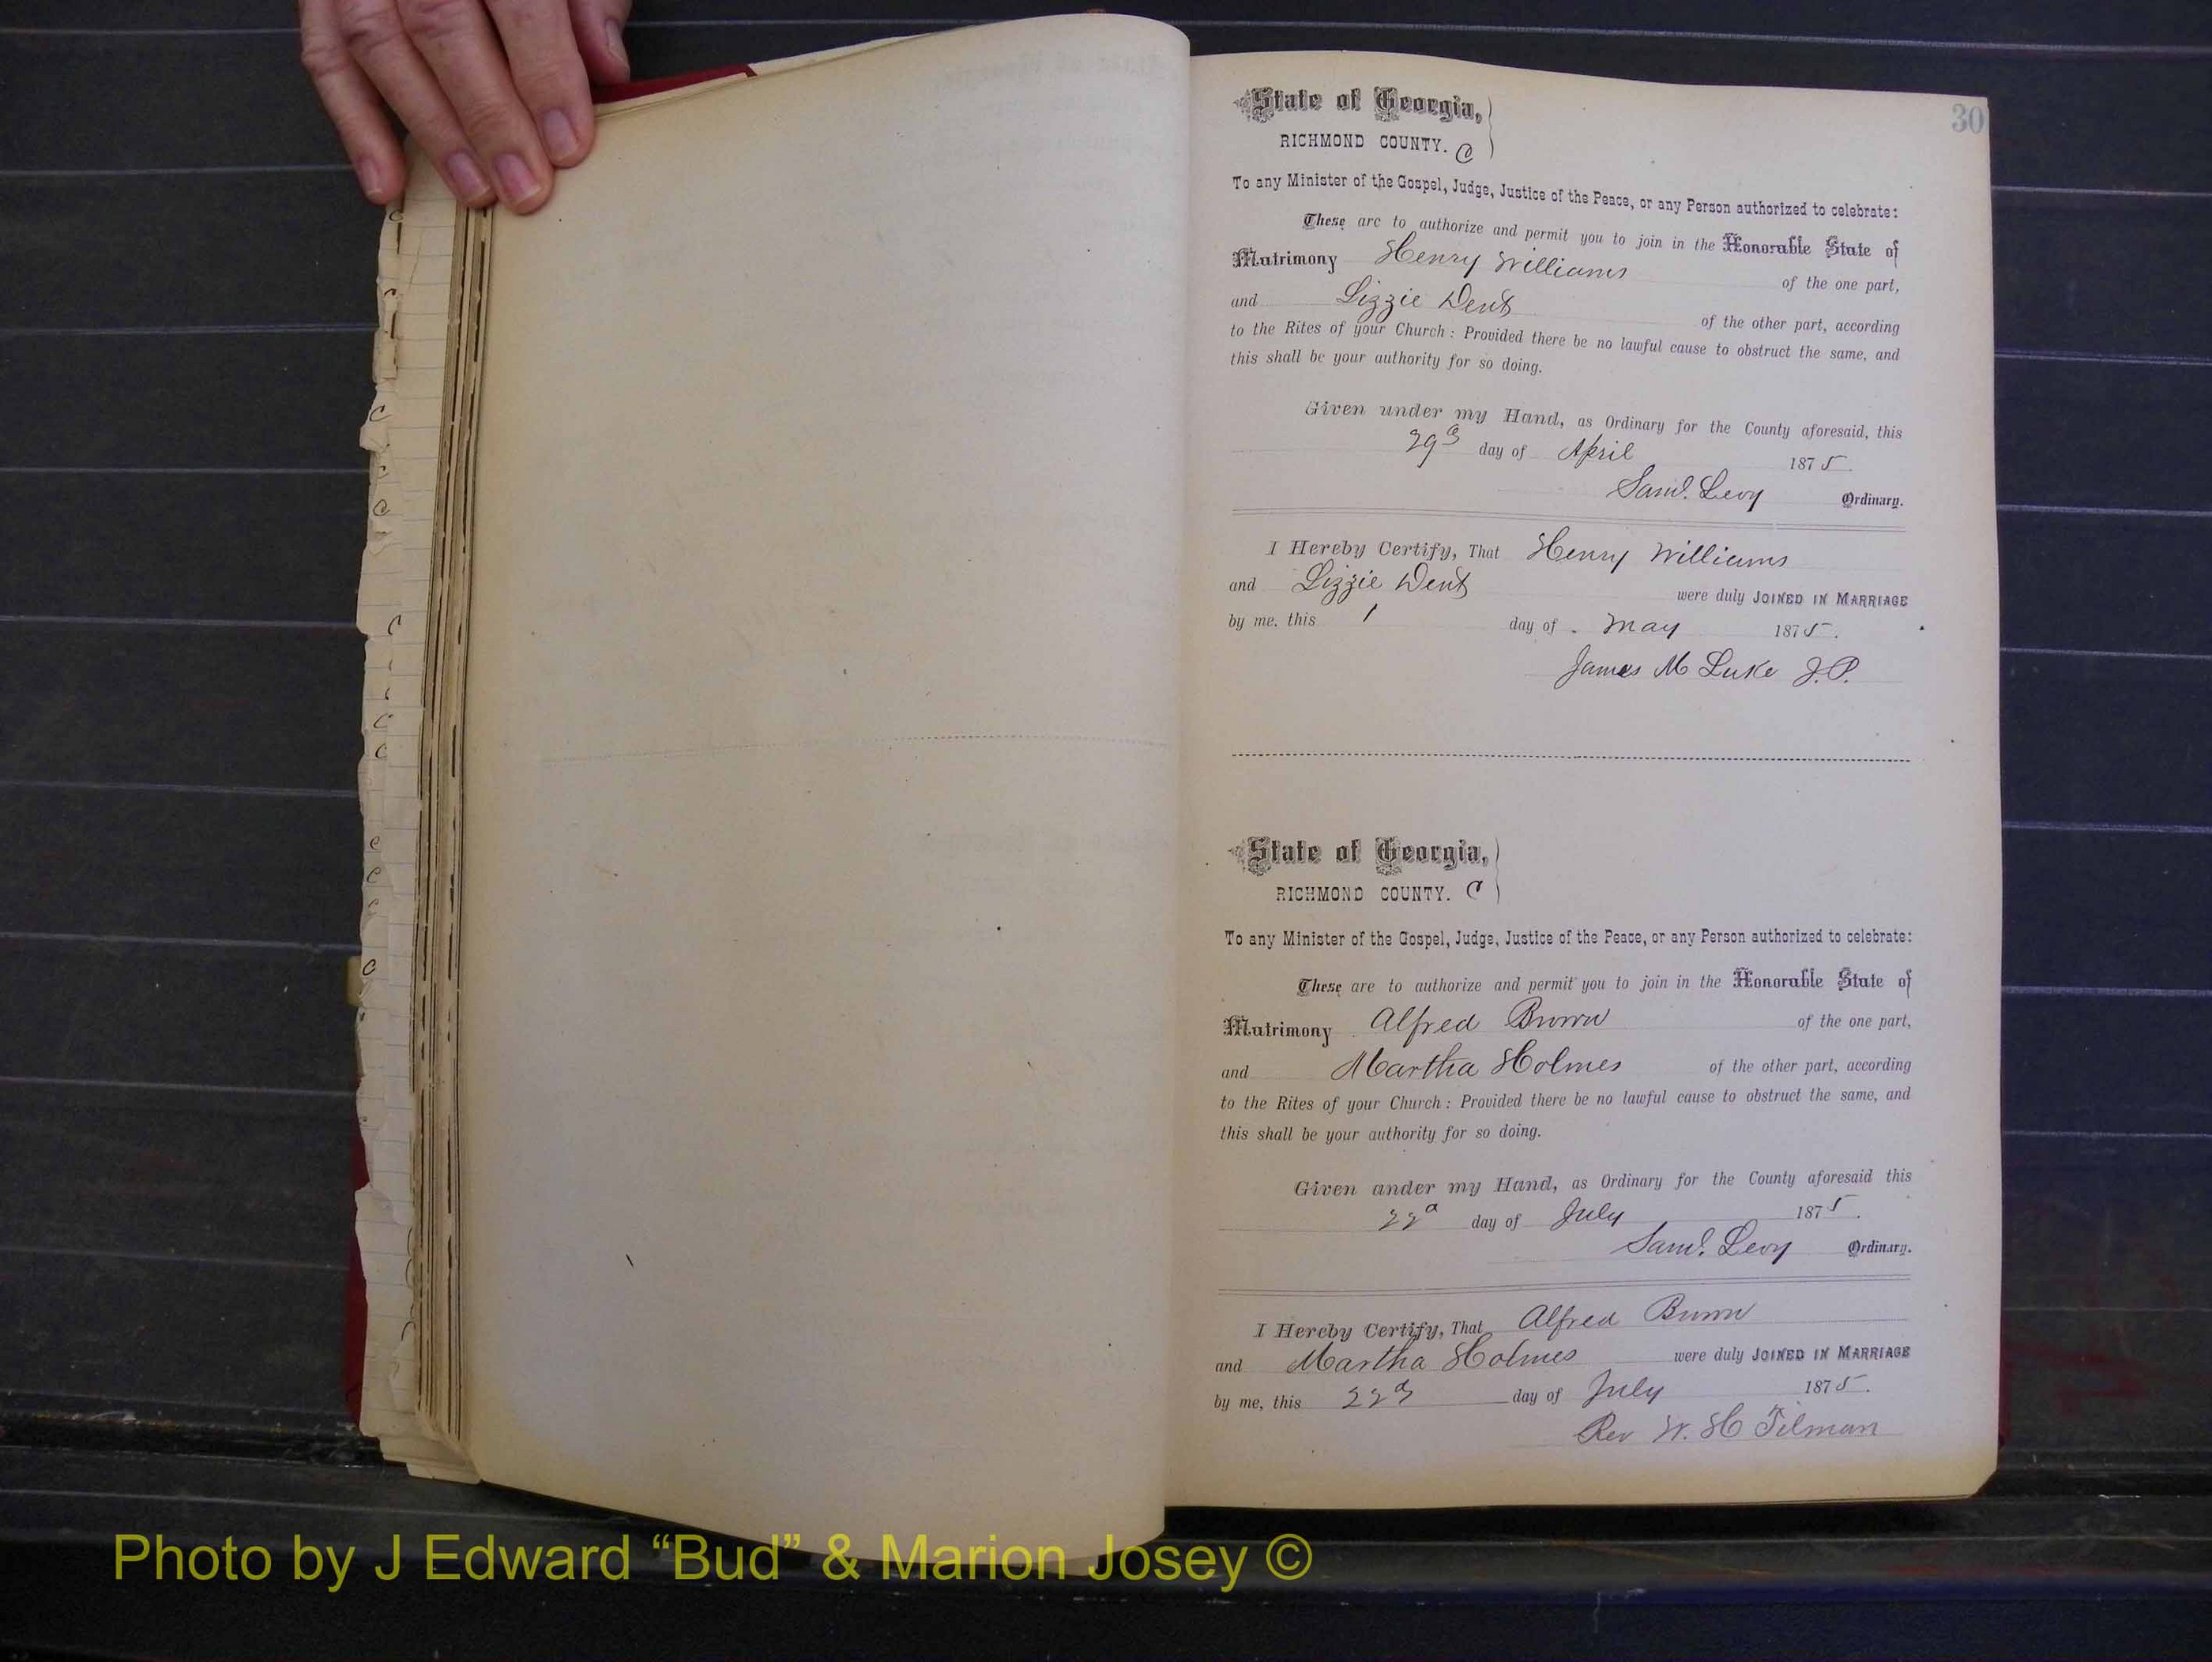 30
State of Georgia,
RICHMOND COUNTY. C
To any Minister of the Gospel, Judge, Justice of the Peace, or any Person authorized to celebrate:
These are to authorize and permit you to join in the Honorable State of
Matrimony Henry Williams of the one part,
and Lizzie Dent of the other part, according
to the Rites of your Church: Provided there be no lawful cause to obstruct the same, and
this shall be your authority for so doing.
Given under my Hand, as Ordinary for the County aforesaid, this
29th day of April 1875.
Saml. Levy Ordinary.
I Hereby Certify, That Henry Williams
and Lizzie Dent were duly JOINED IN MARRIAGE
by me, this 1 day of May 1875.
James M Luke J.P.
State of Georgia,
RICHMOND COUNTY. C
To any Minister of the Gospel, Judge, Justice of the Peace, or any Person authorized to celebrate:
These are to authorize and permit you to join in the Honorable State of
Matrimony Alfred Brown of the one part,
and Martha Holmes of the other part, according
to the Rites of your Church: Provided there be no lawful cause to obstruct the same, and
this shall be your authority for so doing.
Given under my Hand, as Ordinary for the County aforesaid this
22d day of July 1875.
Saml. Levy Ordinary.
I Hereby Certify, That Alfred Brown
and Martha Holmes were duly JOINED IN MARRIAGE
by me, this 22d day of July 1875.
Rev W. H Tilman
Photo by J Edward “Bud” & Marion Josey ©